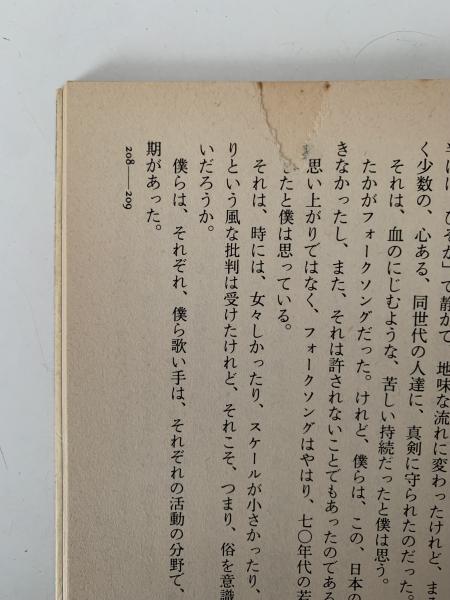 ひそか」で静かで、地味な流れに変わったけれど、まる
く少数の、心ある、同世代の人達に、真剣に守られたのだった。
それは、血のにじむような、苦しい持続だったと僕は思う。
たかがフォークソングだった。けれど、僕らは、この、日本の
きなかったし、また、それは許されないことでもあったのである
思い上がりではなく、フォークソングはやはり、七〇年代の若
たと僕は思っている。
それは、時には、女々しかったり、スケールが小さかったり、
りという風な批判は受けたけれど、それこそ、つまり、俗を意識
いだろうか。
僕らは、それぞれ、僕ら歌い手は、それぞれの活動の分野で、
期があった。
208——209